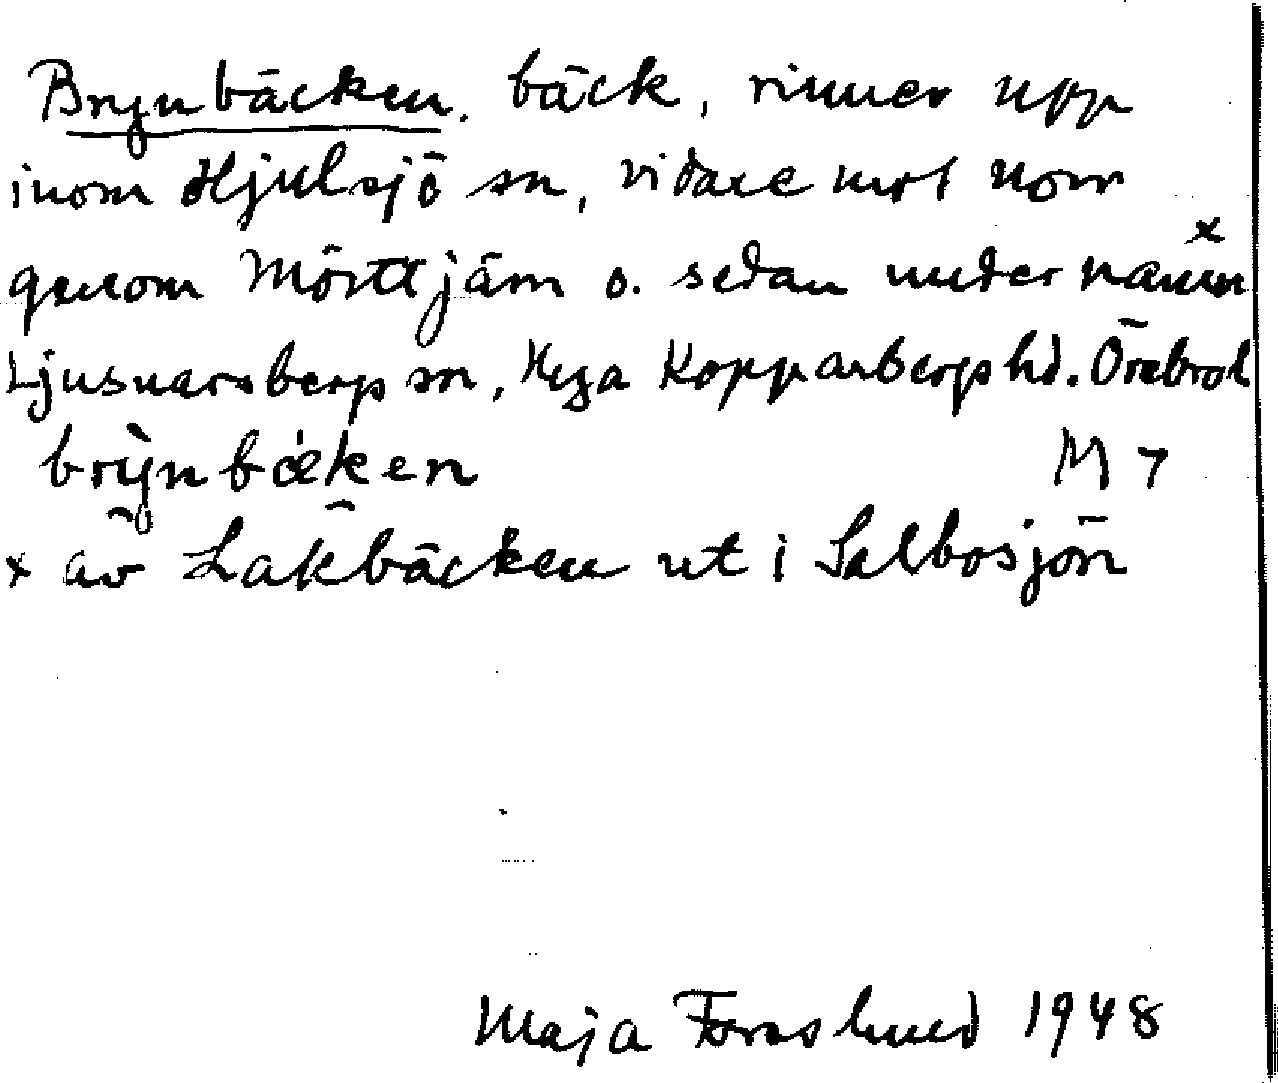 Brynbäcken. bäck, rinner upp
inom Hjulsjö sn, vidare mot norr
genom Mörttjärn o. sedan under namn x
Ljusnarsbergs sn, Nya Kopparbergs hd. Örebro l
brỳnbæken M 7
x av Lakbäcken ut i Salbosjön
Maja Forsslund 1948